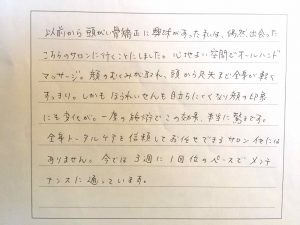 以前から頭がい骨矯正に興味があった私は、偶然出会った
こちらのサロンに行くことにしました。心地よい空間でオールハンド
マッサージ。顔のむくみが取れ、頭から足先まで全身が軽く
すっきり。しかもほうれいせんも目立ちにくくなり顔の印象
にも変化が。一度の施術でこの効果、本当に驚きです。
全身トータルケアを信頼してお任せできるサロン他には
ありません。今では3週に1回位のペースでメンテ
ナンスに通っています。